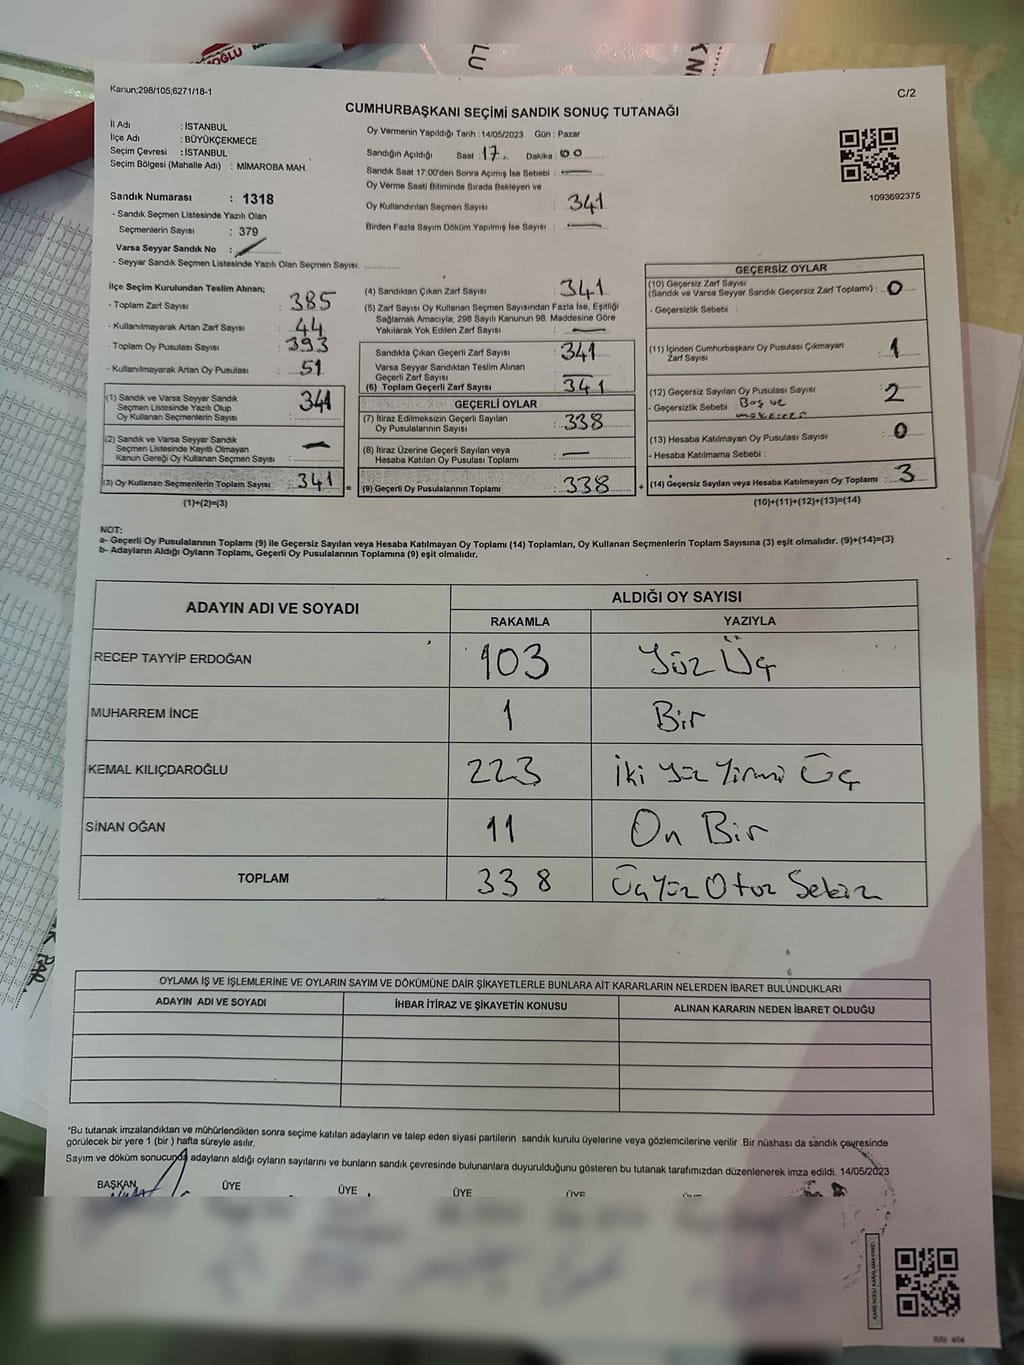 Kanun;298/105,6271/18-1
C/2
CUMHURBAŞKANI SEÇİMİ SANDIK SONUÇ TUTANAĞI
İl Adı : İSTANBUL
İlçe Adı : BÜYÜKÇEKMECE
Seçim Çevresi : İSTANBUL
Seçim Bölgesi (Mahalle Adı) : MİMAROBA MAH.
Oy Vermenin Yapıldığı Tarih : 14/05/2023 Gün : Pazar
Sandığın Açıldığı Saat : 17 Dakika : 00
Sandık Saat 17:00'den Sonra Açımış İse Sebebi :
Oy Verme Saati Bitiminde Sırada Bekleyen ve
Oy Kullandırılan Seçmen Sayısı : 341
Birden Fazla Sayım Döküm Yapılmış İse Sayısı :
1093692375
Sandık Numarası : 1318
- Sandık Seçmen Listesinde Yazılı Olan
Seçmenlerin Sayısı : 379
Varsa Seyyar Sandık No :
- Seyyar Sandık Listesinde Yazılı Olan Seçmen Sayısı:
İlçe Seçim Kurulundan Teslim Alınan;
- Toplam Zarf Sayısı : 385
- Kullanılmayarak Artan Zarf Sayısı : 44
- Toplam Oy Pusulası Sayısı : 393
- Kullanılmayarak Artan Oy Pusulası : 51
(1) Sandık ve Varsa Seyyar Sandık
Seçmen Listesinde Yazılı Olup
Oy Kullanan Seçmenlerin Sayısı : 341
(2) Sandık ve Varsa Seyyar Sandık
Seçmen Listesinde Kayıtlı Olmayan
Kanun Gereği Oy Kullanan Seçmen Sayısı : —
(3) Oy Kullanan Seçmenlerin Toplam Sayısı : 341
(1)+(2)=(3)
=
(4) Sandıktan Çıkan Zarf Sayısı : 341
(5) Zarf Sayısı Oy Kullanan Seçmen Sayısından Fazla İse, Eşitliği
Sağlamak Amacıyla, 298 Sayılı Kanunun 98. Maddesine Göre
Yakılarak Yok Edilen Zarf Sayısı : —
Sandıkta Çıkan Geçerli Zarf Sayısı : 341
Varsa Seyyar Sandıktan Teslim Alınan
Geçerli Zarf Sayısı : —
(6) Toplam Geçerli Zarf Sayısı : 341
GEÇERLİ OYLAR
(7) İtiraz Edilmeksizin Geçerli Sayılan
Oy Pusulalarının Sayısı : 338
(8) İtiraz Üzerine Geçerli Sayılan veya
Hesaba Katılan Oy Pusulası Toplamı : —
(9) Geçerli Oy Pusulalarının Toplamı : 338
+
GEÇERSİZ OYLAR
(10) Geçersiz Zarf Sayısı
(Sandık ve Varsa Seyyar Sandık Geçersiz Zarf Toplamı) : 0
- Geçersizlik Sebebi :
(11) İçinden Cumhurbaşkanı Oy Pusulası Çıkmayan
Zarf Sayısı : 1
(12) Geçersiz Sayılan Oy Pusulası Sayısı : 2
- Geçersizlik Sebebi : Boş ve
(13) Hesaba Katılmayan Oy Pusulası Sayısı : 0
- Hesaba Katılmama Sebebi :
(14) Geçersiz Sayılan veya Hesaba Katılmayan Oy Toplamı : 3
(10)+(11)+(12)+(13)=(14)
NOT:
a- Geçerli Oy Pusulalarının Toplamı (9) ile Geçersiz Sayılan veya Hesaba Katılmayan Oy Toplamı (14) Toplamları, Oy Kullanan Seçmenlerin Toplam Sayısına (3) eşit olmalıdır. (9)+(14)=(3)
b- Adayların Aldığı Oyların Toplamı, Geçerli Oy Pusulalarının Toplamına (9) eşit olmalıdır.
ADAYIN ADI VE SOYADI
ALDIĞI OY SAYISI
RAKAMLA YAZIYLA
RECEP TAYYİP ERDOĞAN 103 Yüz Üç
MUHARREM İNCE 1 Bir
KEMAL KILIÇDAROĞLU 223 İki Yüz Yirmi Üç
SİNAN OĞAN 11 On Bir
TOPLAM 338 Üç Yüz Otuz Sekiz
OYLAMA İŞ VE İŞLEMLERİNE VE OYLARIN SAYIM VE DÖKÜMÜNE DAİR ŞİKAYETLERLE BUNLARA AİT KARARLARIN NELERDEN İBARET BULUNDUKLARI
ADAYIN ADI VE SOYADI İHBAR İTİRAZ VE ŞİKAYETİN KONUSU ALINAN KARARIN NEDEN İBARET OLDUĞU
*Bu tutanak imzalandıktan ve mühürlendikten sonra seçime katılan adayların ve talep eden siyasi partilerin sandık kurulu üyelerine veya gözlemcilerine verilir. Bir nüshası da sandık çevresinde
görülecek bir yere 1 (bir ) hafta süreyle asılır.
Sayım ve döküm sonucunda adayların aldığı oyların sayılarını ve bunların sandık çevresinde bulunanlara duyurulduğunu gösteren bu tutanak tarafımızdan düzenlenerek imza edildi. 14/05/2023
BAŞKAN ÜYE ÜYE ÜYE ÜYE